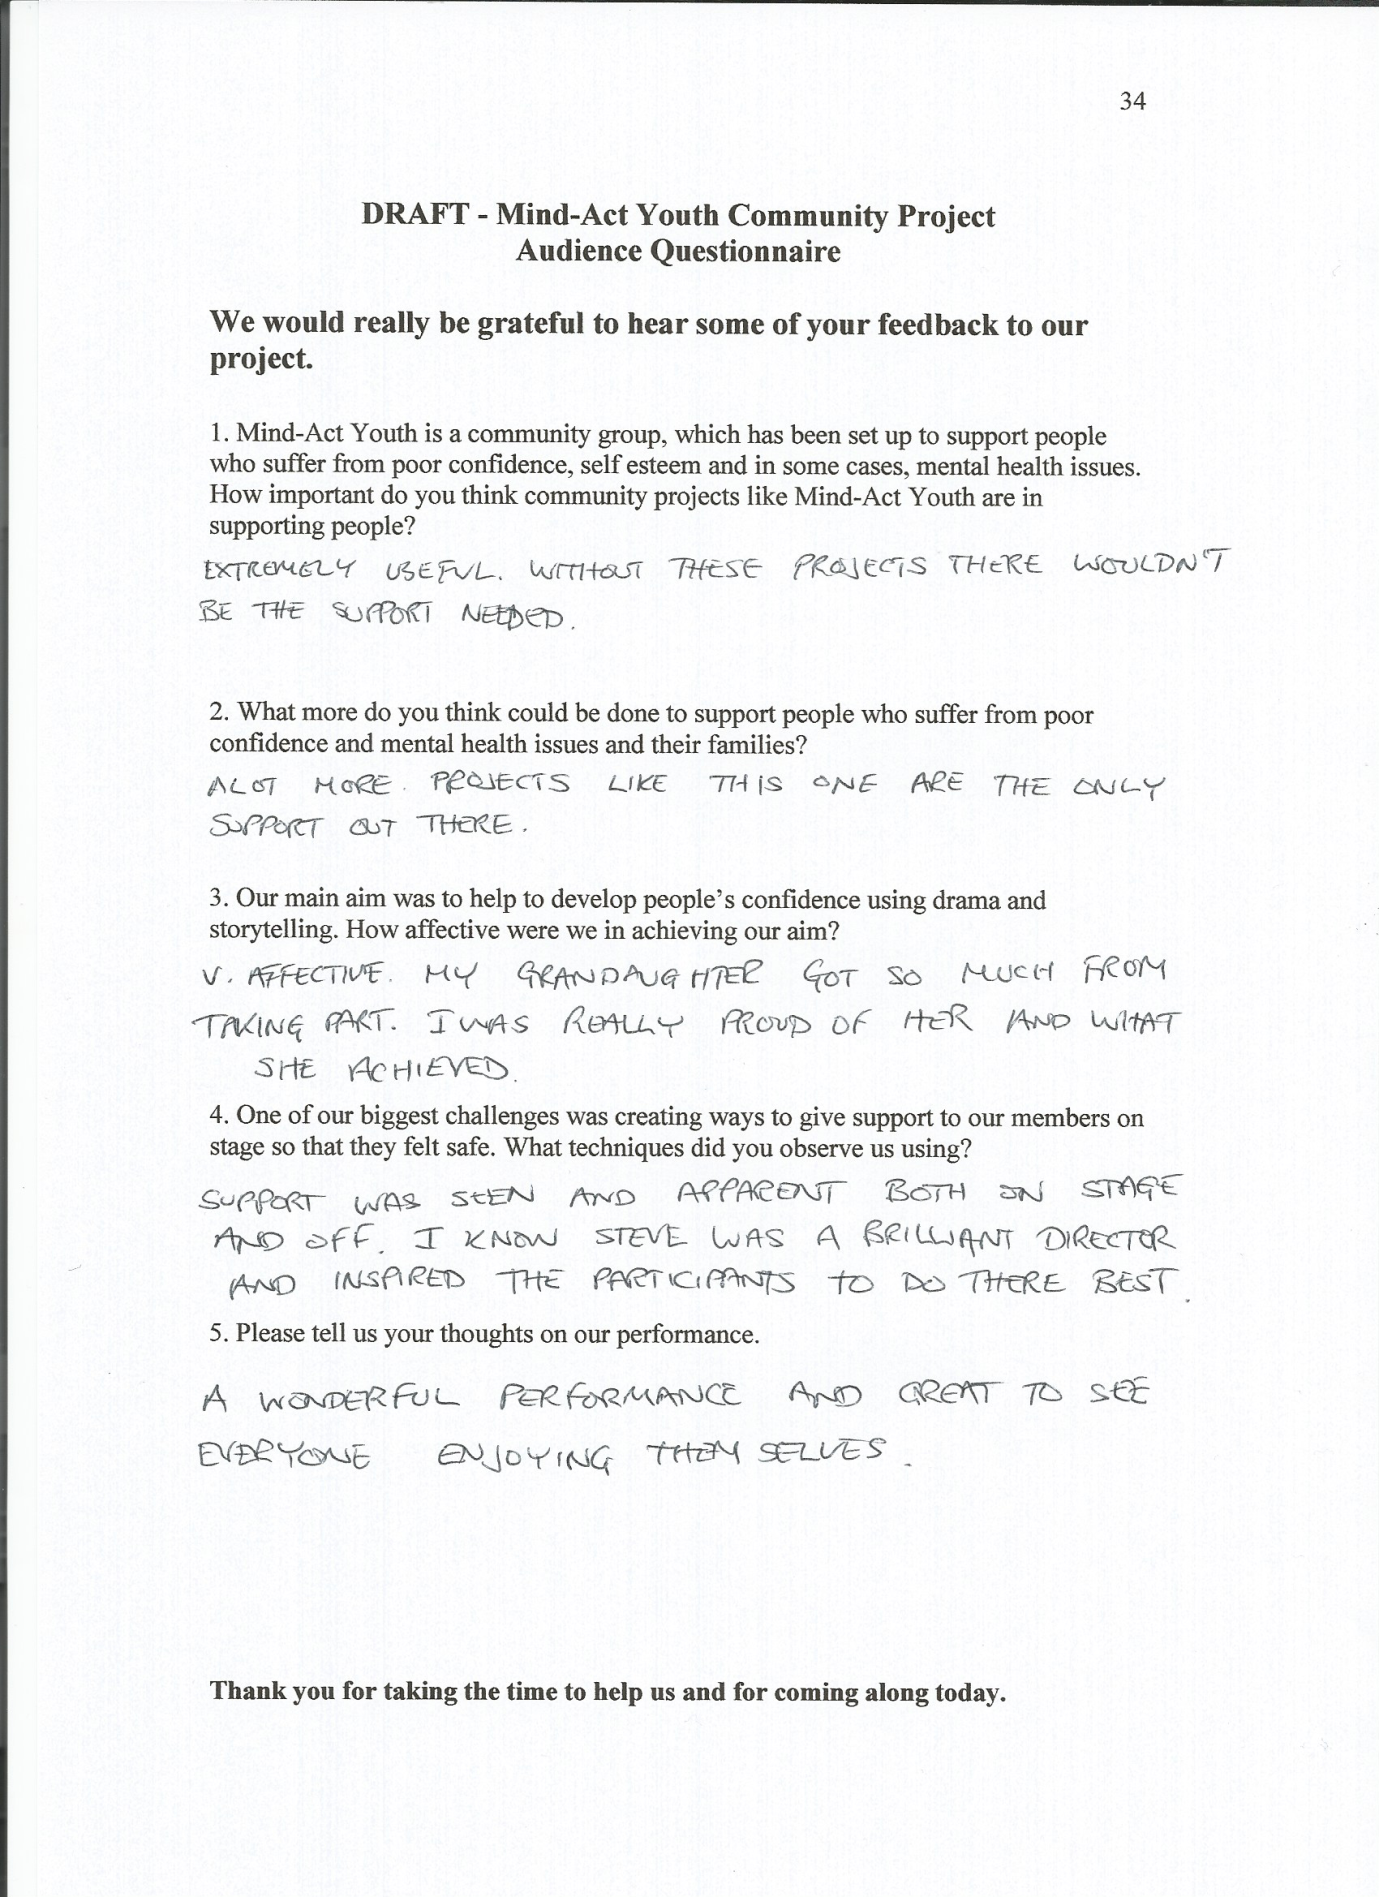 34
DRAFT - Mind-Act Youth Community Project
Audience Questionnaire
We would really be grateful to hear some of your feedback to our
project.
1. Mind-Act Youth is a community group, which has been set up to support people
who suffer from poor confidence, self esteem and in some cases, mental health issues.
How important do you think community projects like Mind-Act Youth are in
supporting people?
EXTREMELY USEFUL. WITHOUT THESE PROJECTS THERE WOULDN'T
BE THE SUPPORT NEEDED.
2. What more do you think could be done to support people who suffer from poor
confidence and mental health issues and their families?
ALOT MORE. PROJECTS LIKE THIS ONE ARE THE ONLY
SUPPORT OUT THERE.
3. Our main aim was to help to develop people's confidence using drama and
storytelling. How affective were we in achieving our aim?
V. AFFECTIVE. MY GRANDAUGHTER GOT SO MUCH FROM
TAKING PART. I WAS REALLY PROUD OF HER AND WHAT
SHE ACHIEVED.
4. One of our biggest challenges was creating ways to give support to our members on
stage so that they felt safe. What techniques did you observe us using?
SUPPORT WAS SEEN AND APPARENT BOTH ON STAGE
AND OFF. I KNOW STEVE WAS A BRILLIANT DIRECTOR
AND INSPIRED THE PARTICIPANTS TO DO THERE BEST.
5. Please tell us your thoughts on our performance.
A WONDERFUL PERFORMANCE AND GREAT TO SEE
EVERYONE ENJOYING THEMSELVES.
Thank you for taking the time to help us and for coming along today.